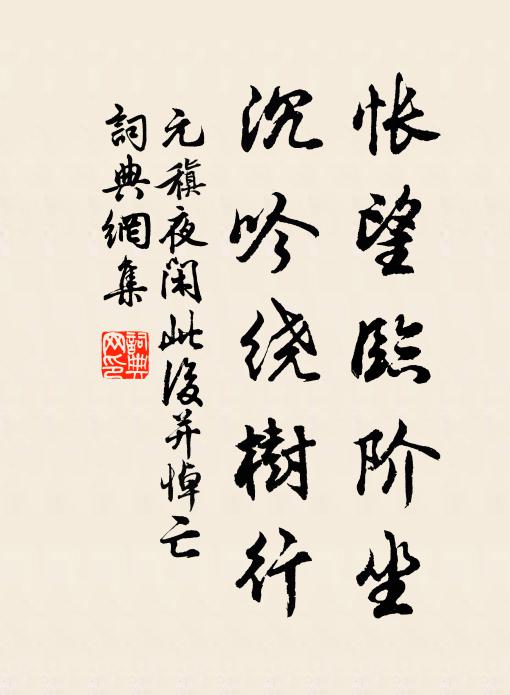 怅望臨阶坐
沉吟绕樹行
元稹夜闲此後并悼亡
詞典網集
詞典網印